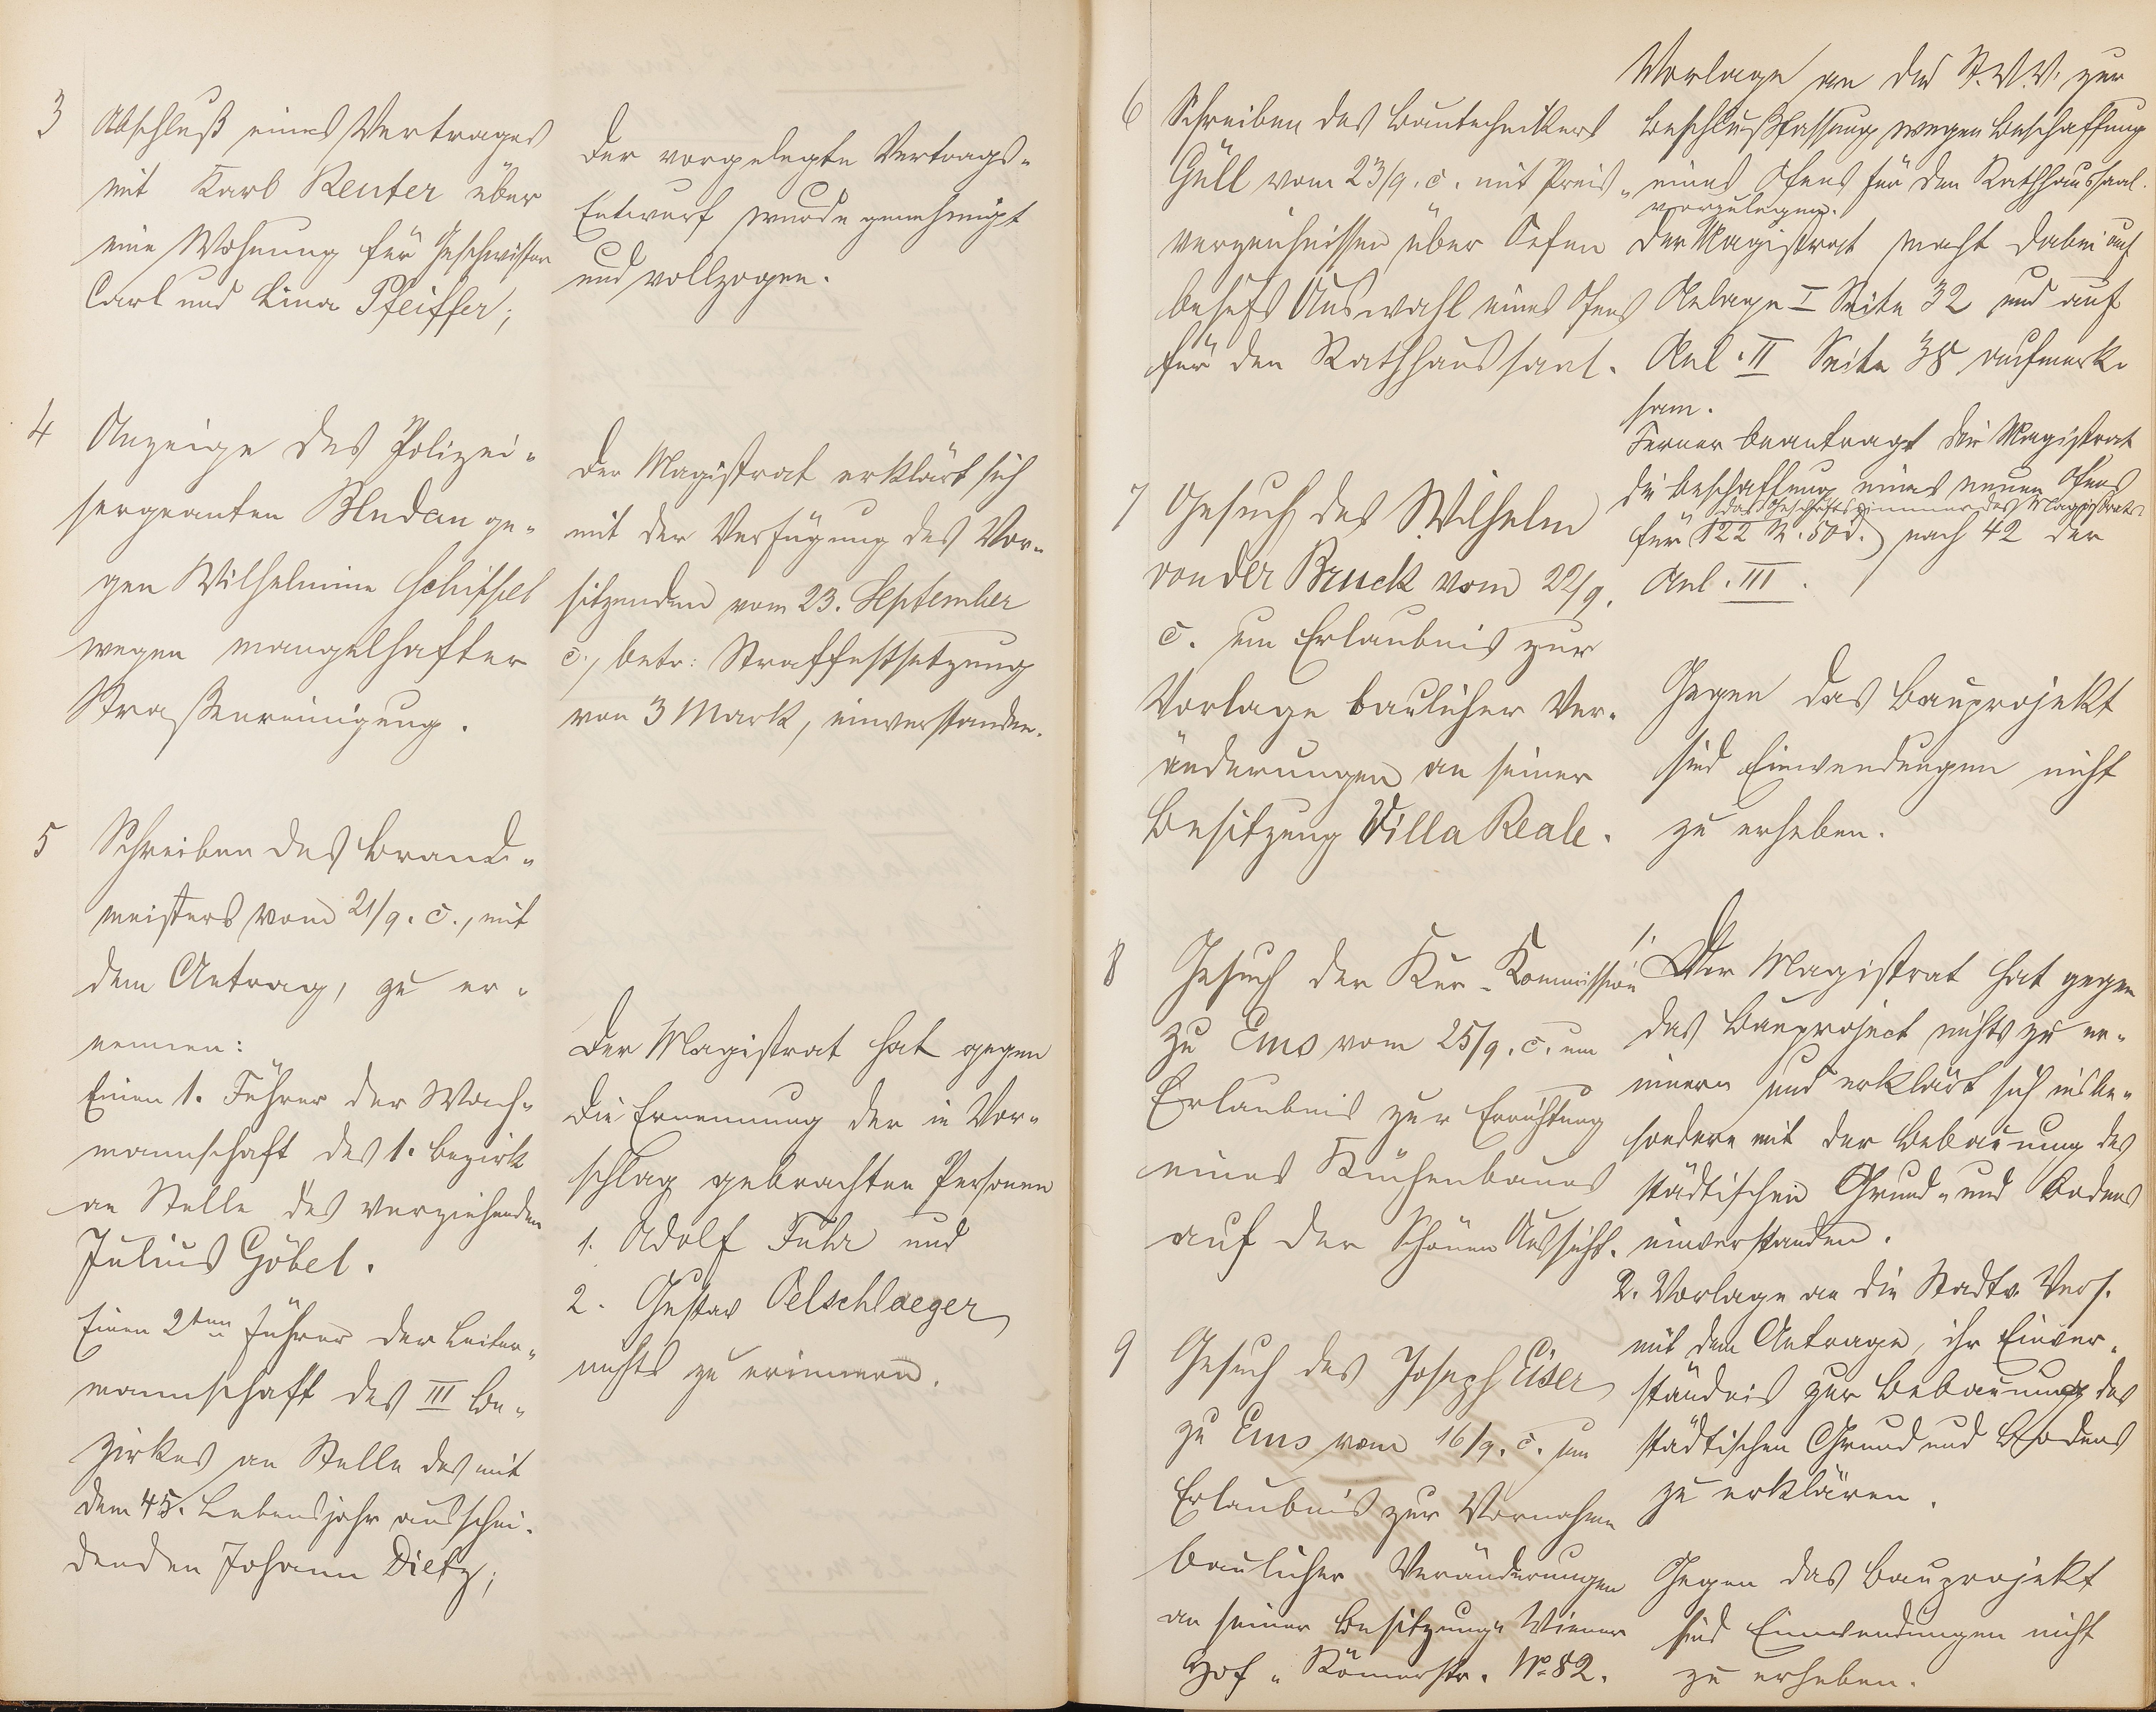 3 Abschluß eines Vertrages
mit Karl Reuter über
eine Wohnung für Geschwister
Carl und Lina Pfeiffer;
Der vorgelegte Vertrags-
Entwurf wurde genehmigt
und vollzogen.
4 Anzeige des Polizei-
sergeanten Bludau ge-
gen Wilhelmine
wegen mangelhafter
Straßenreinigung.
Der Magistrat erklärt sich
mit der Verfügung des Vor-
sitzenden vom 23. September
c., betr: Straffestsetzung
von 3 Mark, einverstanden.
5 Schreiben des Brand-
meisters vom 21/9. c., mit
dem Antrag, zu er-
nennen:
Einen 1. Führer der Wach-
mannschaft des 1. Bezirk
an Stelle des verziehenden
Julius Göbel.
Einen 2ten Führer der Leiter-
mannschaft des III Be-
zirkes an Stelle des mit
dem 45. Lebensjahr ausschei-
denden Johann Dietz;
Der Magistrat hat gegen
die Ernennung der in Vor-
schlag gebrachten Personen
1. Adolf Fuhr und
2. Gustav Oelschlaeger
nichts zu erinnern.
6 Schreiben des Bautechnikers
Güll vom 23/9. c. mit Preis-
verzeichnissen über Oefen
behufs Auswahl eines Ofens
für den Rathhaussaal.
Vorlage an die St.V.V. zur
Beschlußfassung wegen Beschaffung
eines Ofens für den Rathhaussaal.
vorzulegen.
Der Magistrat macht dabei auf
Anlage I Seite 32 und auf
Anl. II Seite 38 aufmerk-
sam.
Ferner beantragt der Magistrat
die Beschaffung eines neuen Ofens
das Geschäftszimmer des Magistrats
für 122 M. 50 d. nach 42 der
Anl. III.
7 Gesuch des Wilhelm
von der Bruck vom 22/9.
c. um Erlaubnis zur
Vorlage baulicher Ver-
änderungen an seiner
Besitzung Villa Reale.
Gegen das Bauprojekt
sind Einwendungen nicht
zu erheben.
8 Gesuch der Kur-Kommission
zu Ems vom 25/9. c. um
Erlaubnis zur Errichtung
eines Küchenbaues
auf der Schönen Aussicht.
1. Der Magistrat hat gegen
das Bauproject nichts zu er-
innern und erklärt sich insbe-
sondere mit der Bebauung des
städtischen Grund- und Bodens
einverstanden.
2. Vorlage an die Stadtv. Vers.
mit dem Antrage, ihr Einver-
ständnis zur Bebauung des
städtischen Grund und Bodens
zu erklären.
9 Gesuch des Joseph Eiser
zu Ems vom 16/9. c. um
Erlaubnis zur Vornahme
baulicher Veränderungen
an seiner Besitzung "Wiener
Hof" Römerstr. No 82.
Gegen das Bauprojekt
sind Einwendungen nicht
zu erheben.